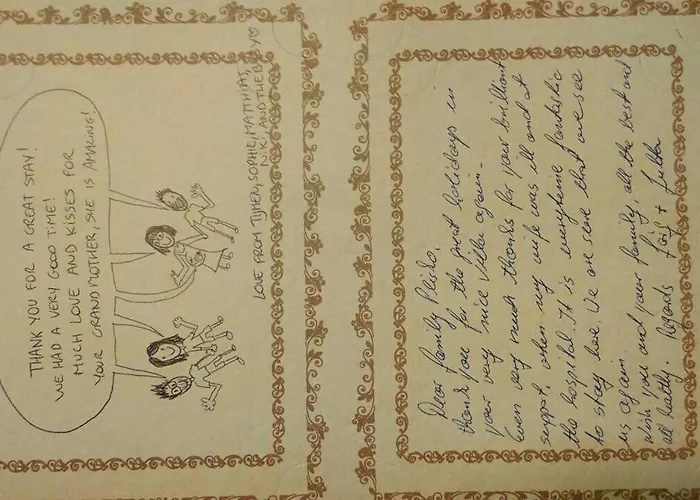 THANK YOU FOR A GREAT STAY!
WE HAD A VERY GOOD TIME!
MUCH LOVE AND KISSES FOR
YOUR GRANDMOTHER, SHE IS AMAZING!
LOVE FROM TIJMEN, SOPHIE, MATTHIAS,
NIKI AND THE BABY ♡
Dear family
thank you for the great holidays in
your very nice Villa again.
Even very much thanks for your brilliant
support, when my wife was ill and at
the hospital. It is everytime fantastic
to stay here. We are sure that one see
us again.
wish you and your family, all the best and
all healthy Regards +